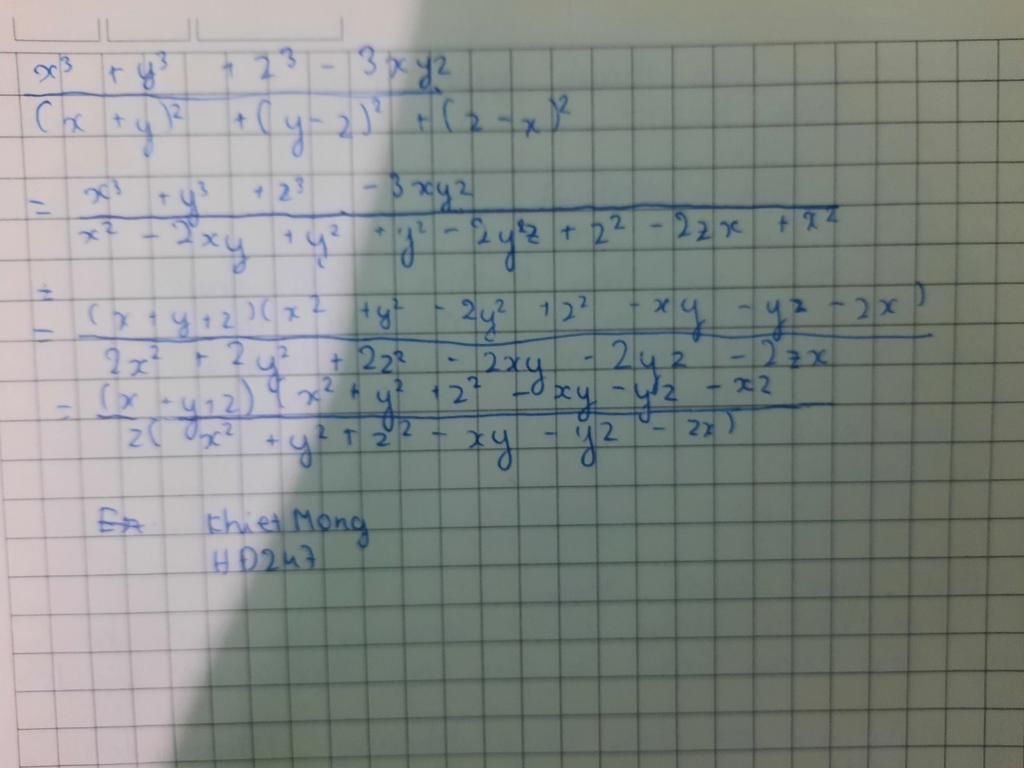 x³ + y³ + z³ - 3xyz
(x + y)² + (y - z)² + (z - x)²
= x³ + y³ + z³ - 3xyz
x² - 2xy + y² + y² - 2yz + z² - 2zx + x²
=
= (x + y + z)(x² + y² - 2y² + z² - xy - yz - zx)
2x² + 2y² + 2z² - 2xy - 2yz - 2zx
= (x - y + z)(x² + y² + z² - xy - yz - xz
2(x² + y² + z² - xy - yz - zx)
Khiet Mong
HD247